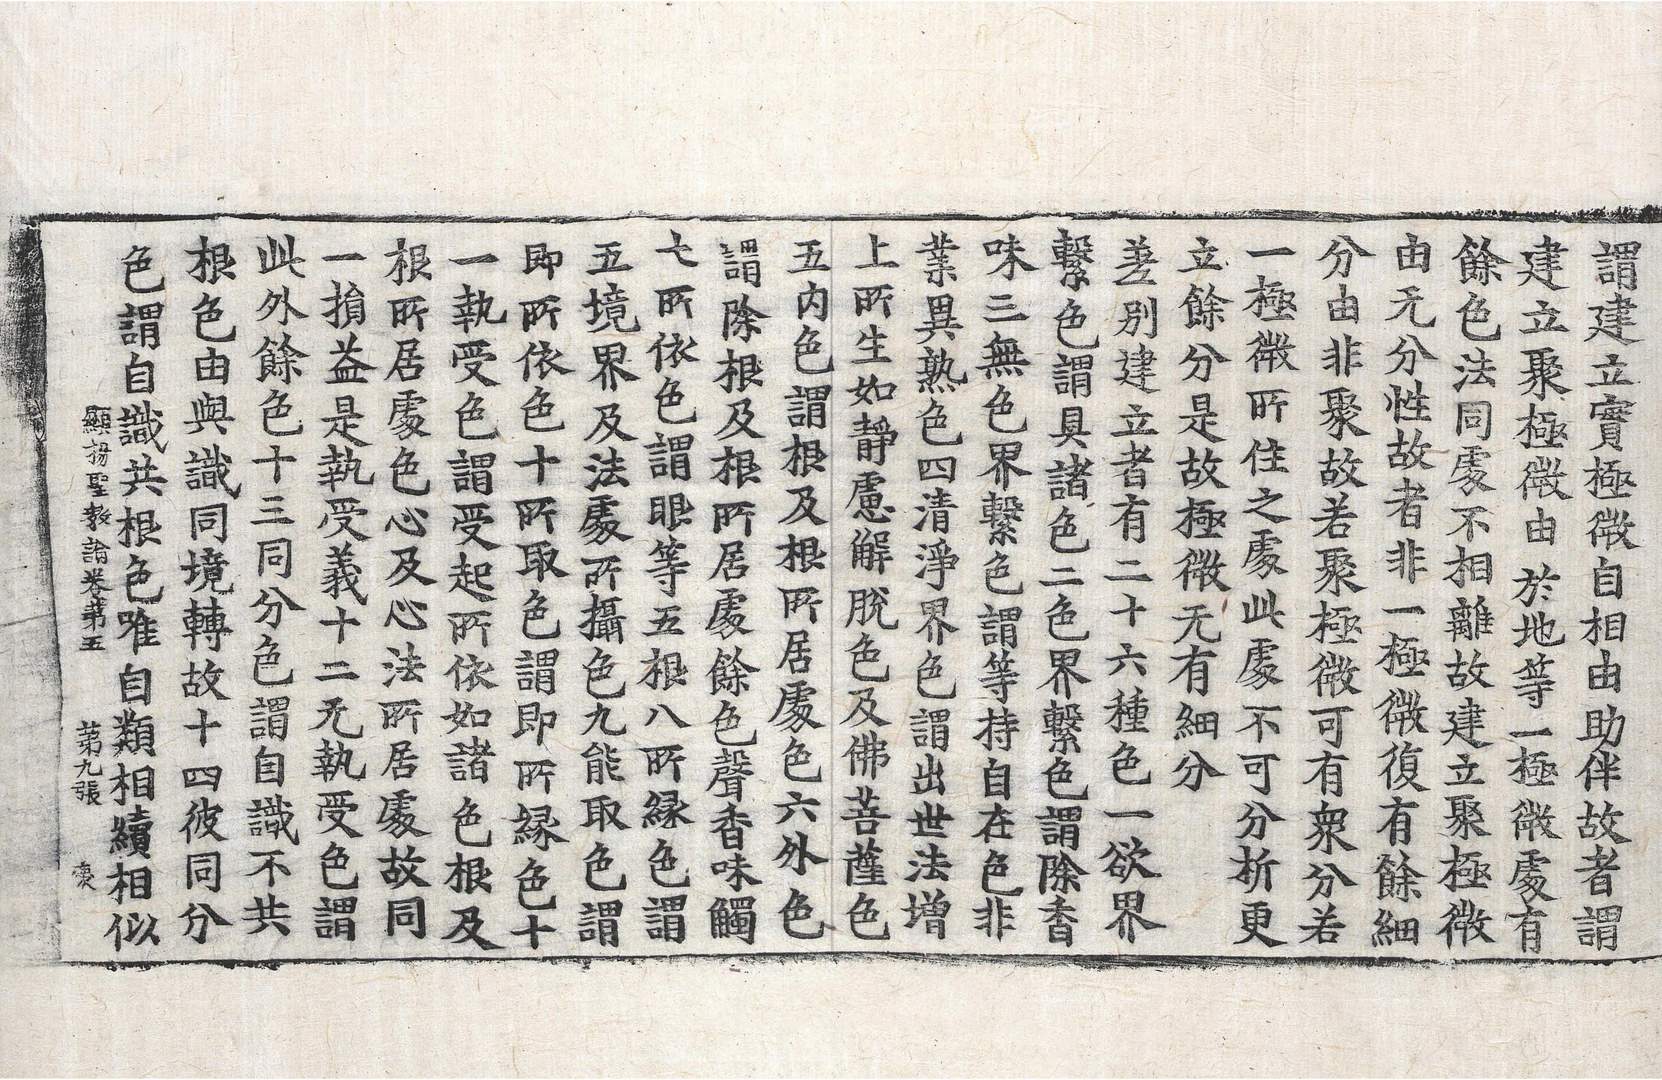 謂建立實極微自相由助伴故者謂
建立聚極微由於地等一極微處有
餘色法同處不相離故建立聚極微
由无分性故者非一極微復有餘細
分由非聚故若聚極微可有衆分若
一極微所住之處此處不可分折更
立餘分是故極微无有細分
差別建立者有二十六種色一欲界
繫色謂具諸色二色界繫色謂除香
味三無色界繫色謂等持自在色非
業異熟色四清淨界色謂出世法增
上所生如靜慮解脫色及佛菩薩色
五內色謂根及根所居處色六外色
謂除根及根所居處餘色聲香味觸
七所依色謂眼等五根八所緣色謂
五境界及法處所攝色九能取色謂
即所依色十所取色謂即所緣色十
一執受色謂受起所依如諸色根及
根所居處色心及心法所居處故同
一損益是執受義十二无執受色謂
此外餘色十三同分色謂自識不共
根色由與識同境轉故十四彼同分
色謂自識共根色唯自類相續相似
顯揚聖教論卷第五 第九張